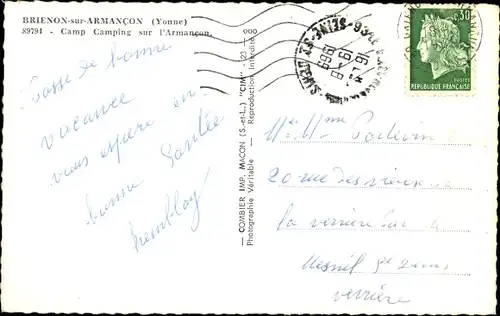 BRIENON-sur-ARMANÇON (Yonne)
89791 - Camp Camping sur l'Armançon.
Passe de bonne
vacance
vous espère en
bonne Santée
Tremblay
COMBIER IMP. MACON (S.-et-L.) "CIM"
Photographie Véritable - Reproduction Interdite
0,30
POSTES
REPUBLIQUE FRANÇAISE
Mr Mme
20 rue des vieux
la verrière
Mesnil St Denis
verrière